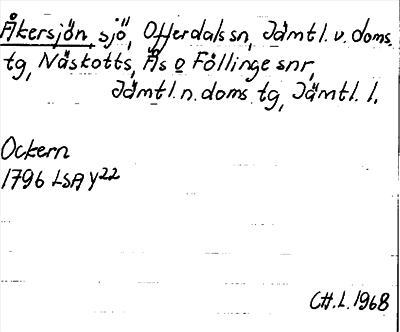 Åkersjön, sjö, Offerdals sn, Jämtl. v. doms.
tg, Näskotts, Ås o Föllinge snr,
Jämtl. n. doms. tg, Jämtl. l.
Ockern
1796 LSA Y22
CH.L. 1968